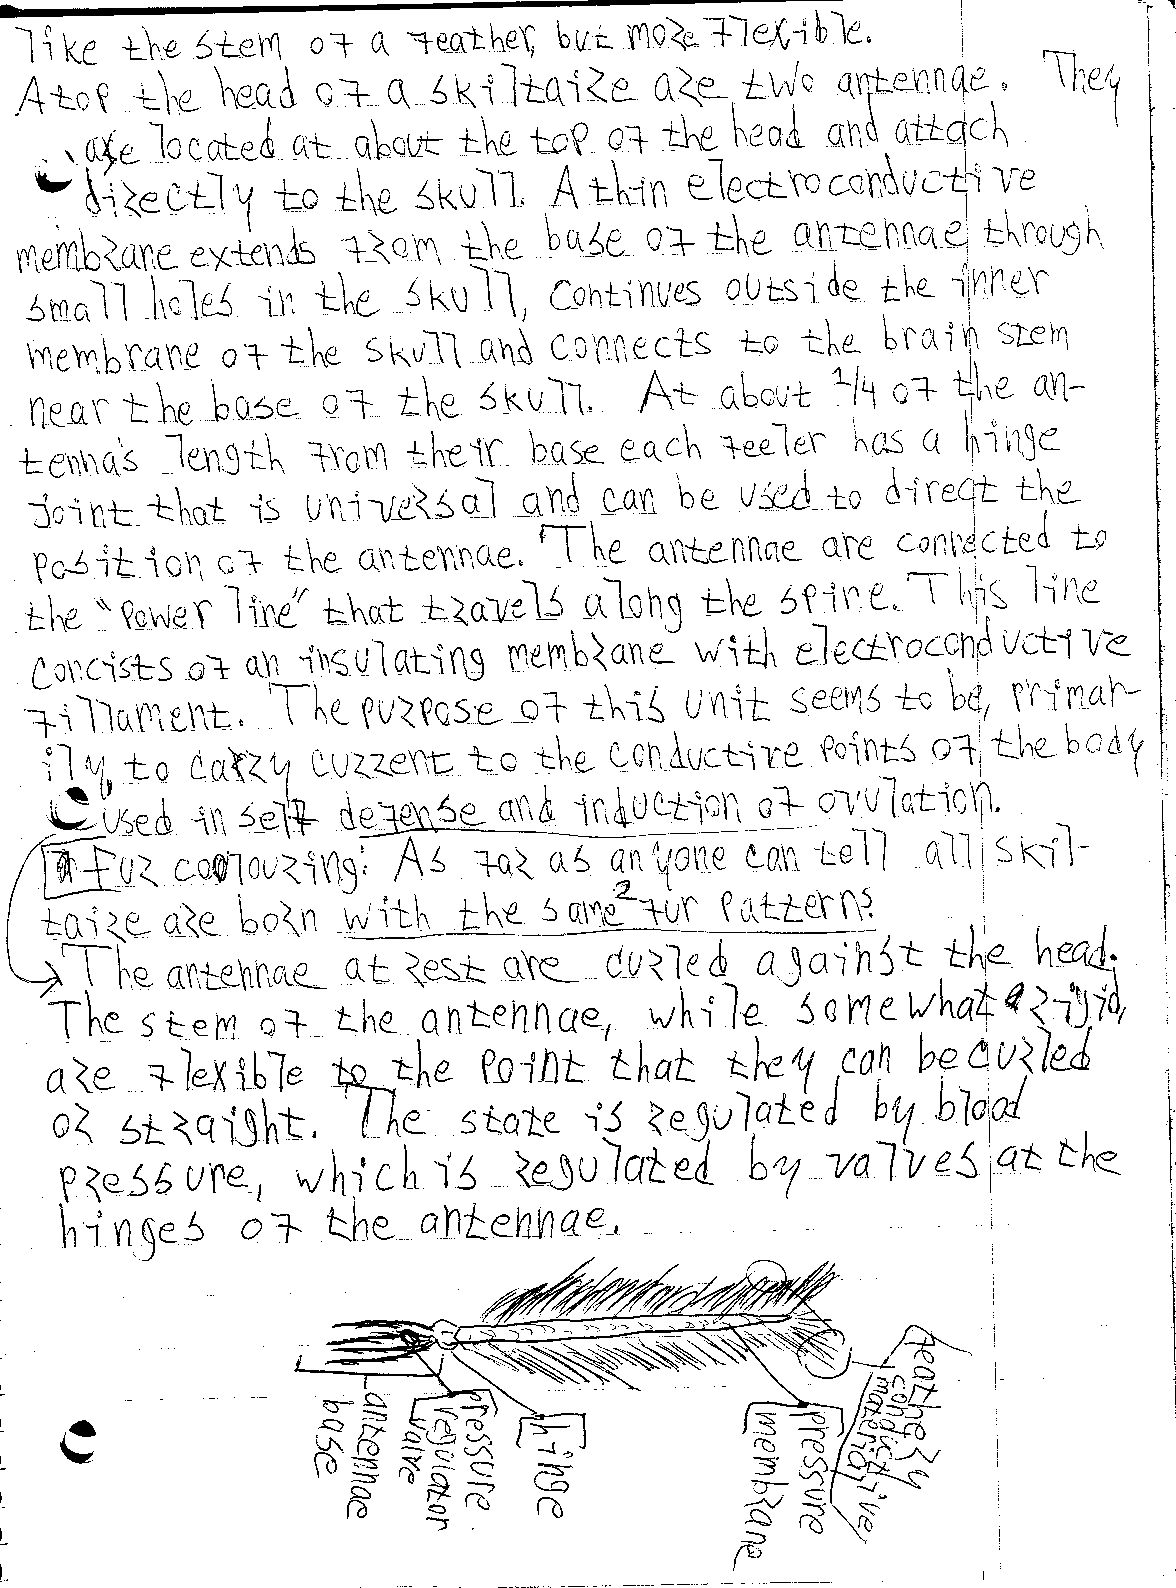 like the stem of a feather, but more flexible.
Atop the head of a skiltaire are two antennae. They
are located at about the top of the head and attach
directly to the skull. A thin electroconductive
membrane extends from the base of the antennae through
small holes in the skull, continues outside the inner
membrane of the skull and connects to the brain stem
near the base of the skull. At about 1/4 of the an-
tenna's length from their base each feeler has a hinge
joint that is universal and can be used to direct the
position of the antennae. The antennae are connected to
the "power line" that travels along the spine. This line
concists of an insulating membrane with electroconductive
fillament. The purpose of this unit seems to be, primar-
ily, to carry current to the conductive points of the body
used in self defense and induction of ovulation.
Fur colouring: As far as anyone can tell all skil-
taire are born with the same 2 fur patterns
The antennae at rest are curled against the head.
The stem of the antennae, while somewhat rigid,
are flexible to the point that they can be curled
or straight. The state is regulated by blood
pressure, which is regulated by valves at the
hinges of the antennae.
antennae
base
pressure
regulator
valve
hinge
pressure
membrane
feathery
condictive
material